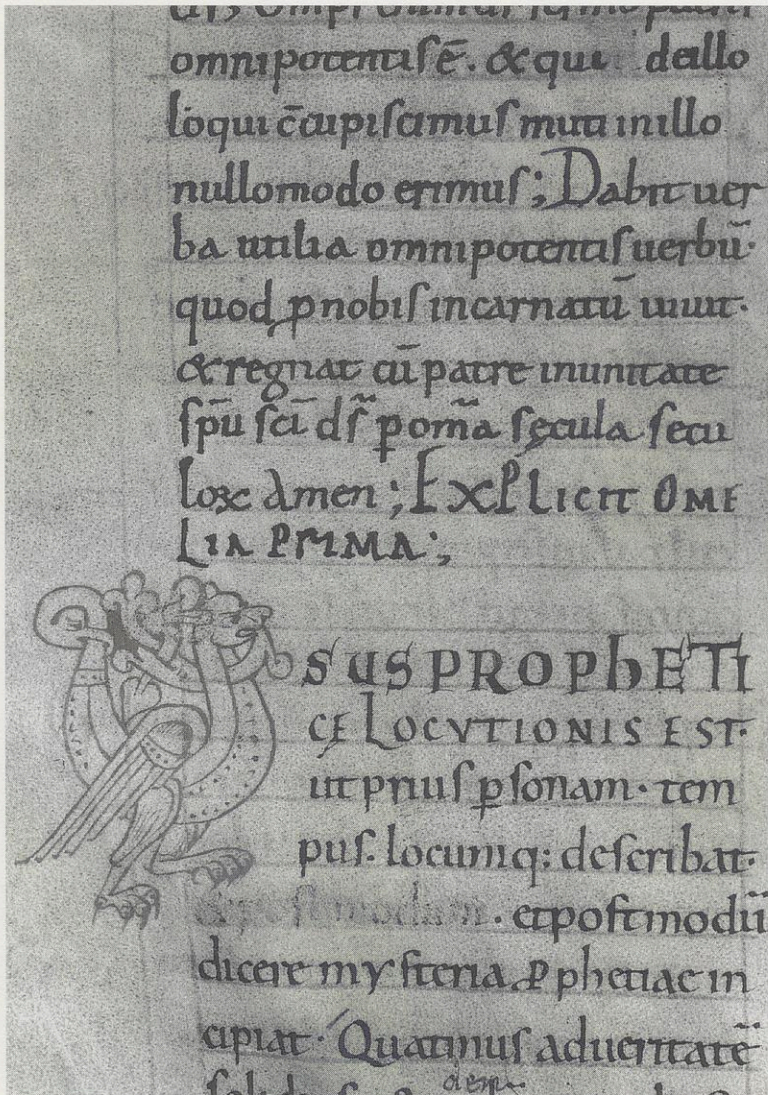 omnipotentis ē. & qui deillo
loqui c̄cupiscimus muti inillo
nullomodo erimus; Dabit uer
ba utilia omnipotentis uerbū.
quod p nobis incarnatū uiuit.
& regnat cū patre inunitate
sp̄u sc̄i ds̄ p om̄a sęcula secu
loꝝ amen; EXPLICIT OME
LIA PRIMA:,
USUS PROPhETI
CĘ LOCVTIONIS EST.
ut prius ꝑsonam. tem
pus. locumq: describat.
. etpostmodū
dicere mysteria ꝓphetiae in
cipiat. Quatinus adueritatē